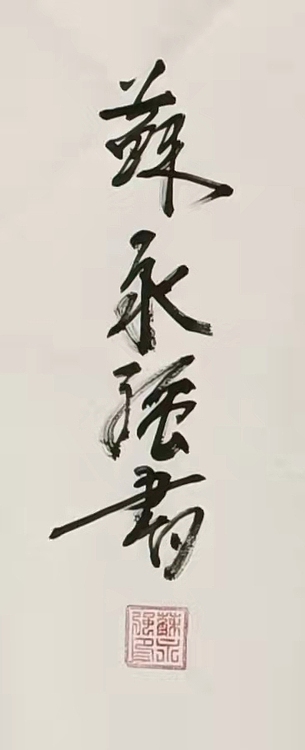 蘇永强書
蘇永强印